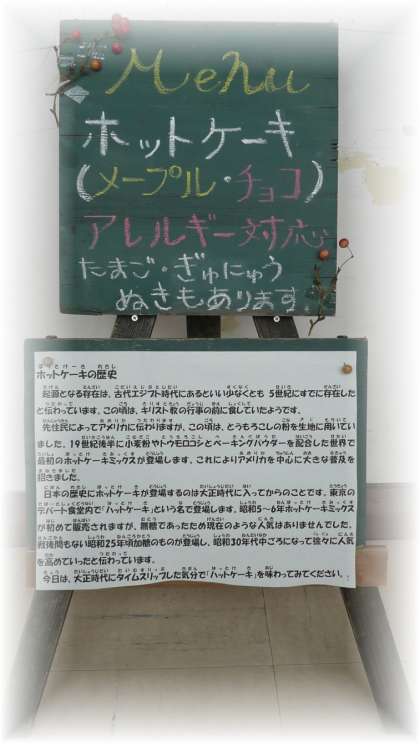 Menu
ホットケーキ
(メープル・チョコ)
アレルギー対応
たまご・ぎゅにゅう
ぬきもあります
ホットケーキの歴史
起源となる存在は、古代エジプト時代にあるといい少なくとも 5世紀にすでに存在した
と伝わっています。この頃は、キリスト教の行事の前に食していたようです。
先住民によってアメリカに伝わりますが、この頃は、とうもろこしの粉を生地に用いてい
ました。19世紀後半に小麦粉やトウモロコシとベーキングパウダーを配合した世界で
最初のホットケーキミックスが登場します。これによりアメリカを中心に大きな普及を
招きました。
日本の歴史にホットケーキが登場するのは大正時代に入ってからのことです。東京の
デパート食堂内で「ハットケーキ」という名で登場します。昭和5～6年ホットケーキミックス
が初めて販売されますが、無糖であったため現在のような人気はありませんでした。
戦後間もない昭和25年頃加糖のものが登場し、昭和30年代中ごろになって徐々に人気
を高めていったと伝わっています。
今日は、大正時代にタイムスリップした気分で「ハットケーキ」を味わってみてください。